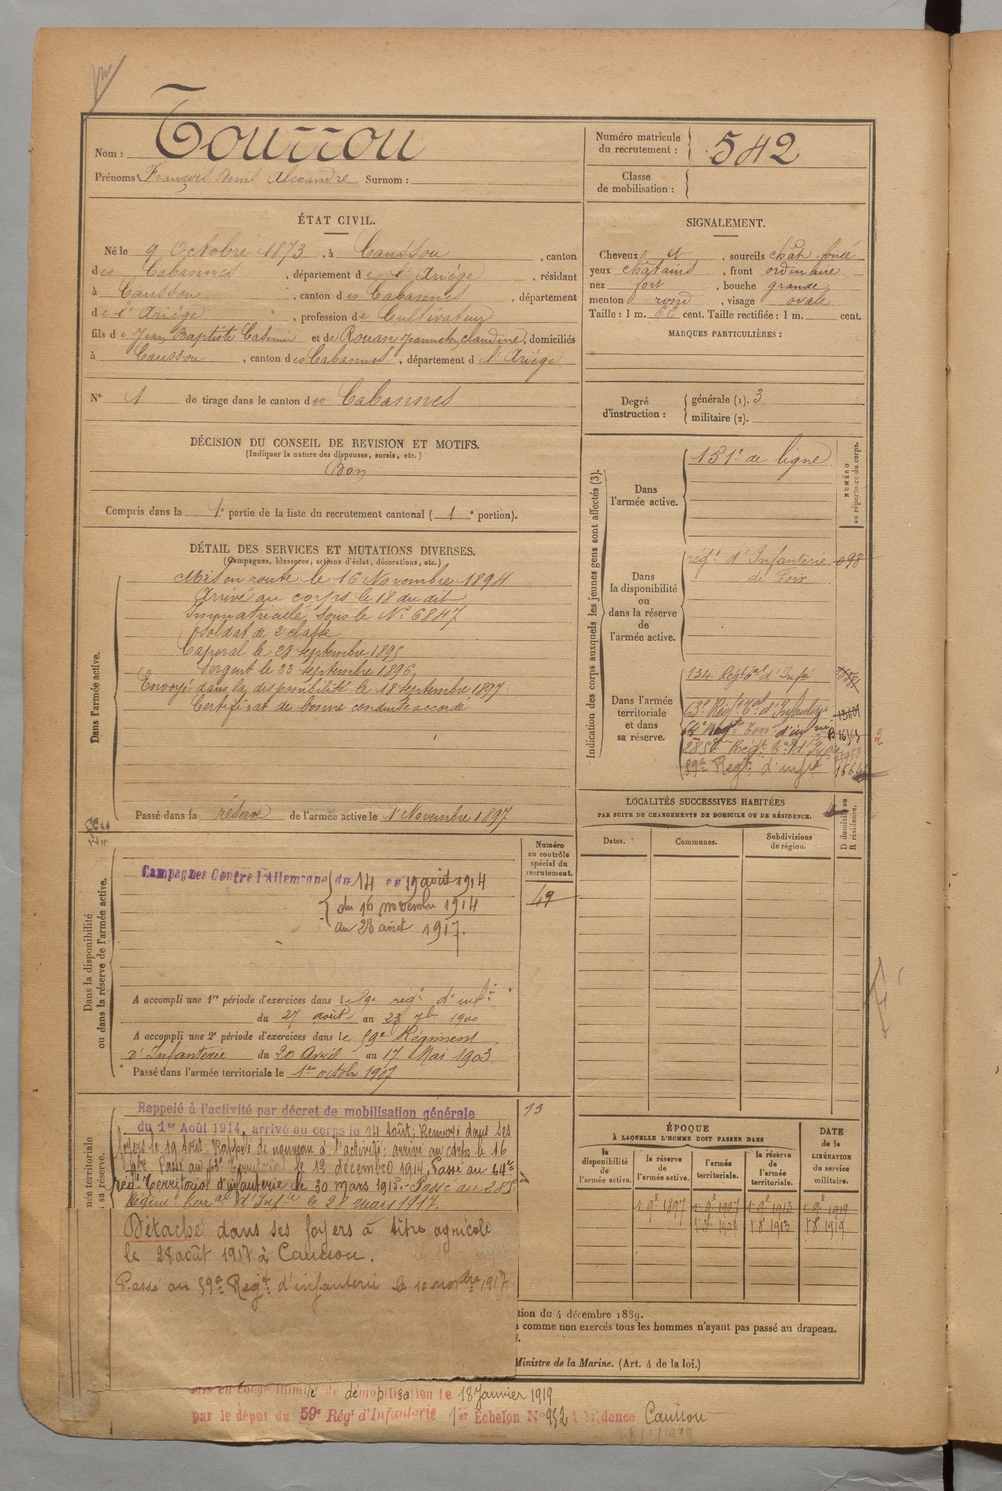 Nom : Tourrou
Prénoms : François Denis Alexandre Surnom :
Numéro matricule du recrutement : 542
Classe de mobilisation :
ÉTAT CIVIL.
Né le 9 Octobre 1873, à Caussou, canton
des Cabannes, département de l'Ariège, résidant
à Caussou, canton des Cabannes, département
de l'Ariège, profession de Cultivateur
fils de Jean Baptiste Casimir et de Rouan Jeannette Claudine, domiciliés
à Caussou, canton des Cabannes, département de l'Ariège
N° 1 de tirage dans le canton des Cabannes
SIGNALEMENT.
Cheveux et, sourcils chât. foncé
yeux châtains, front ordinaire
nez fort, bouche grande
menton rond, visage ovale
Taille : 1 m. 62 cent. Taille rectifiée : 1 m. cent.
MARQUES PARTICULIÈRES :
Degré d'instruction : générale (1). 3
militaire (2).
DÉCISION DU CONSEIL DE REVISION ET MOTIFS.
(Indiquer la nature des dispenses, sursis, etc.)
Bon
Compris dans la 1e partie de la liste du recrutement cantonal (1e portion).
DÉTAIL DES SERVICES ET MUTATIONS DIVERSES.
(Campagnes, blessures, actions d'éclat, décorations, etc.)
Dans l'armée active.
Mis en route le 16 Novembre 1894
Arrivé au corps le 18 du dit
Immatriculé sous le N° 6847
Soldat de 2e classe
Caporal le 28 septembre 1895
Sergent le 23 septembre 1896
Envoyé dans la disponibilité le 18 septembre 1897
Certificat de bonne conduite accordé
Passé dans la réserve de l'armée active le 1er Novembre 1897
Indication des corps auxquels les jeunes gens sont affectés (3).
NUMÉRO au répertoire du corps.
Dans l'armée active.
151e de ligne
Dans la disponibilité ou dans la réserve de l'armée active.
régt d'Infanterie de Foix 098
Dans l'armée territoriale et dans sa réserve.
134e Régt tal d'Infie
63e Régt tal d'Infanterie
64e Régt Terr. d'infrie 16363
285e Régt
59e Régt d'infie
LOCALITÉS SUCCESSIVES HABITÉES
PAR SUITE DE CHANGEMENTS DE DOMICILE OU DE RÉSIDENCE.
D domicile ou R résidence.
Dates. Communes. Subdivisions de région.
Dans la disponibilité ou dans la réserve de l'armée active.
Numéro au contrôle spécial du recrutement.
49
Campagnes Contre l'Allemagne du 14 au 19 août 1914
du 16 novembre 1914
au 28 août 1917.
A accompli une 1re période d'exercices dans le 59e régt d'infie
du 27 août au 23 7bre 1900
A accompli une 2e période d'exercices dans le 59e Régiment
d'Infanterie du 20 Avril au 17 Mai 1903
Passé dans l'armée territoriale le 1er octobre 1907
Rappelé à l'activité par décret de mobilisation générale
du 1er Août 1914, arrivé au corps le 14 Août; Renvoyé dans ses
foyers le 19 Août. Rappelé de nouveau à l'activité; arrivé au corps le 16
9bre. Passé au 63e Territorial le 13 décembre 1914. Passé au 64e
régt Territorial d'infanterie le 30 mars 1915. Passé au 285
Régiment terral d'Infie le 28 mars 1917.
Détaché dans ses foyers à titre agricole
le 28 août 1917 à Caussou.
Passé au 59e Régt d'infanterie le 10 novbre 1917
13
ÉPOQUE
À LAQUELLE L'HOMME DOIT PASSER DANS
DATE de la LIBÉRATION du service militaire.
la disponibilité de l'armée active. la réserve de l'armée active. l'armée territoriale. la réserve de l'armée territoriale.
1er 9bre 1897
1907 1913 1919
1913 1919
tion du 4 décembre 1889.
comme non exercés tous les hommes n'ayant pas passé au drapeau.
Ministre de la Marine. (Art. 4 de la loi.)
Mis en congé illimité de démobilisation le 18 Janvier 1919
par le dépôt du 59e Régt d'Infanterie 1er Echelon N° 952 Résidence Caussou